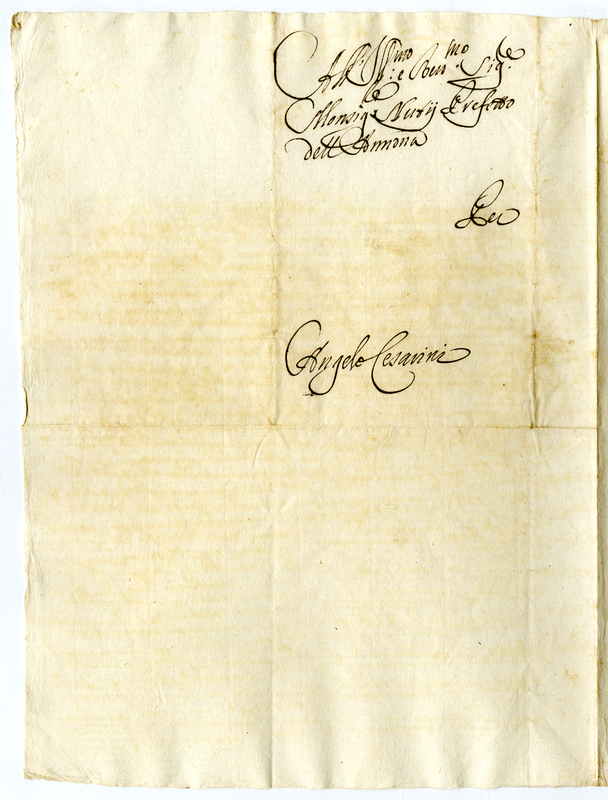 All' Ill.mo e Rev.mo Sig.re
Monsig.re Nerij Prefetto
dell'Annona
Per
Angelo Cesarini